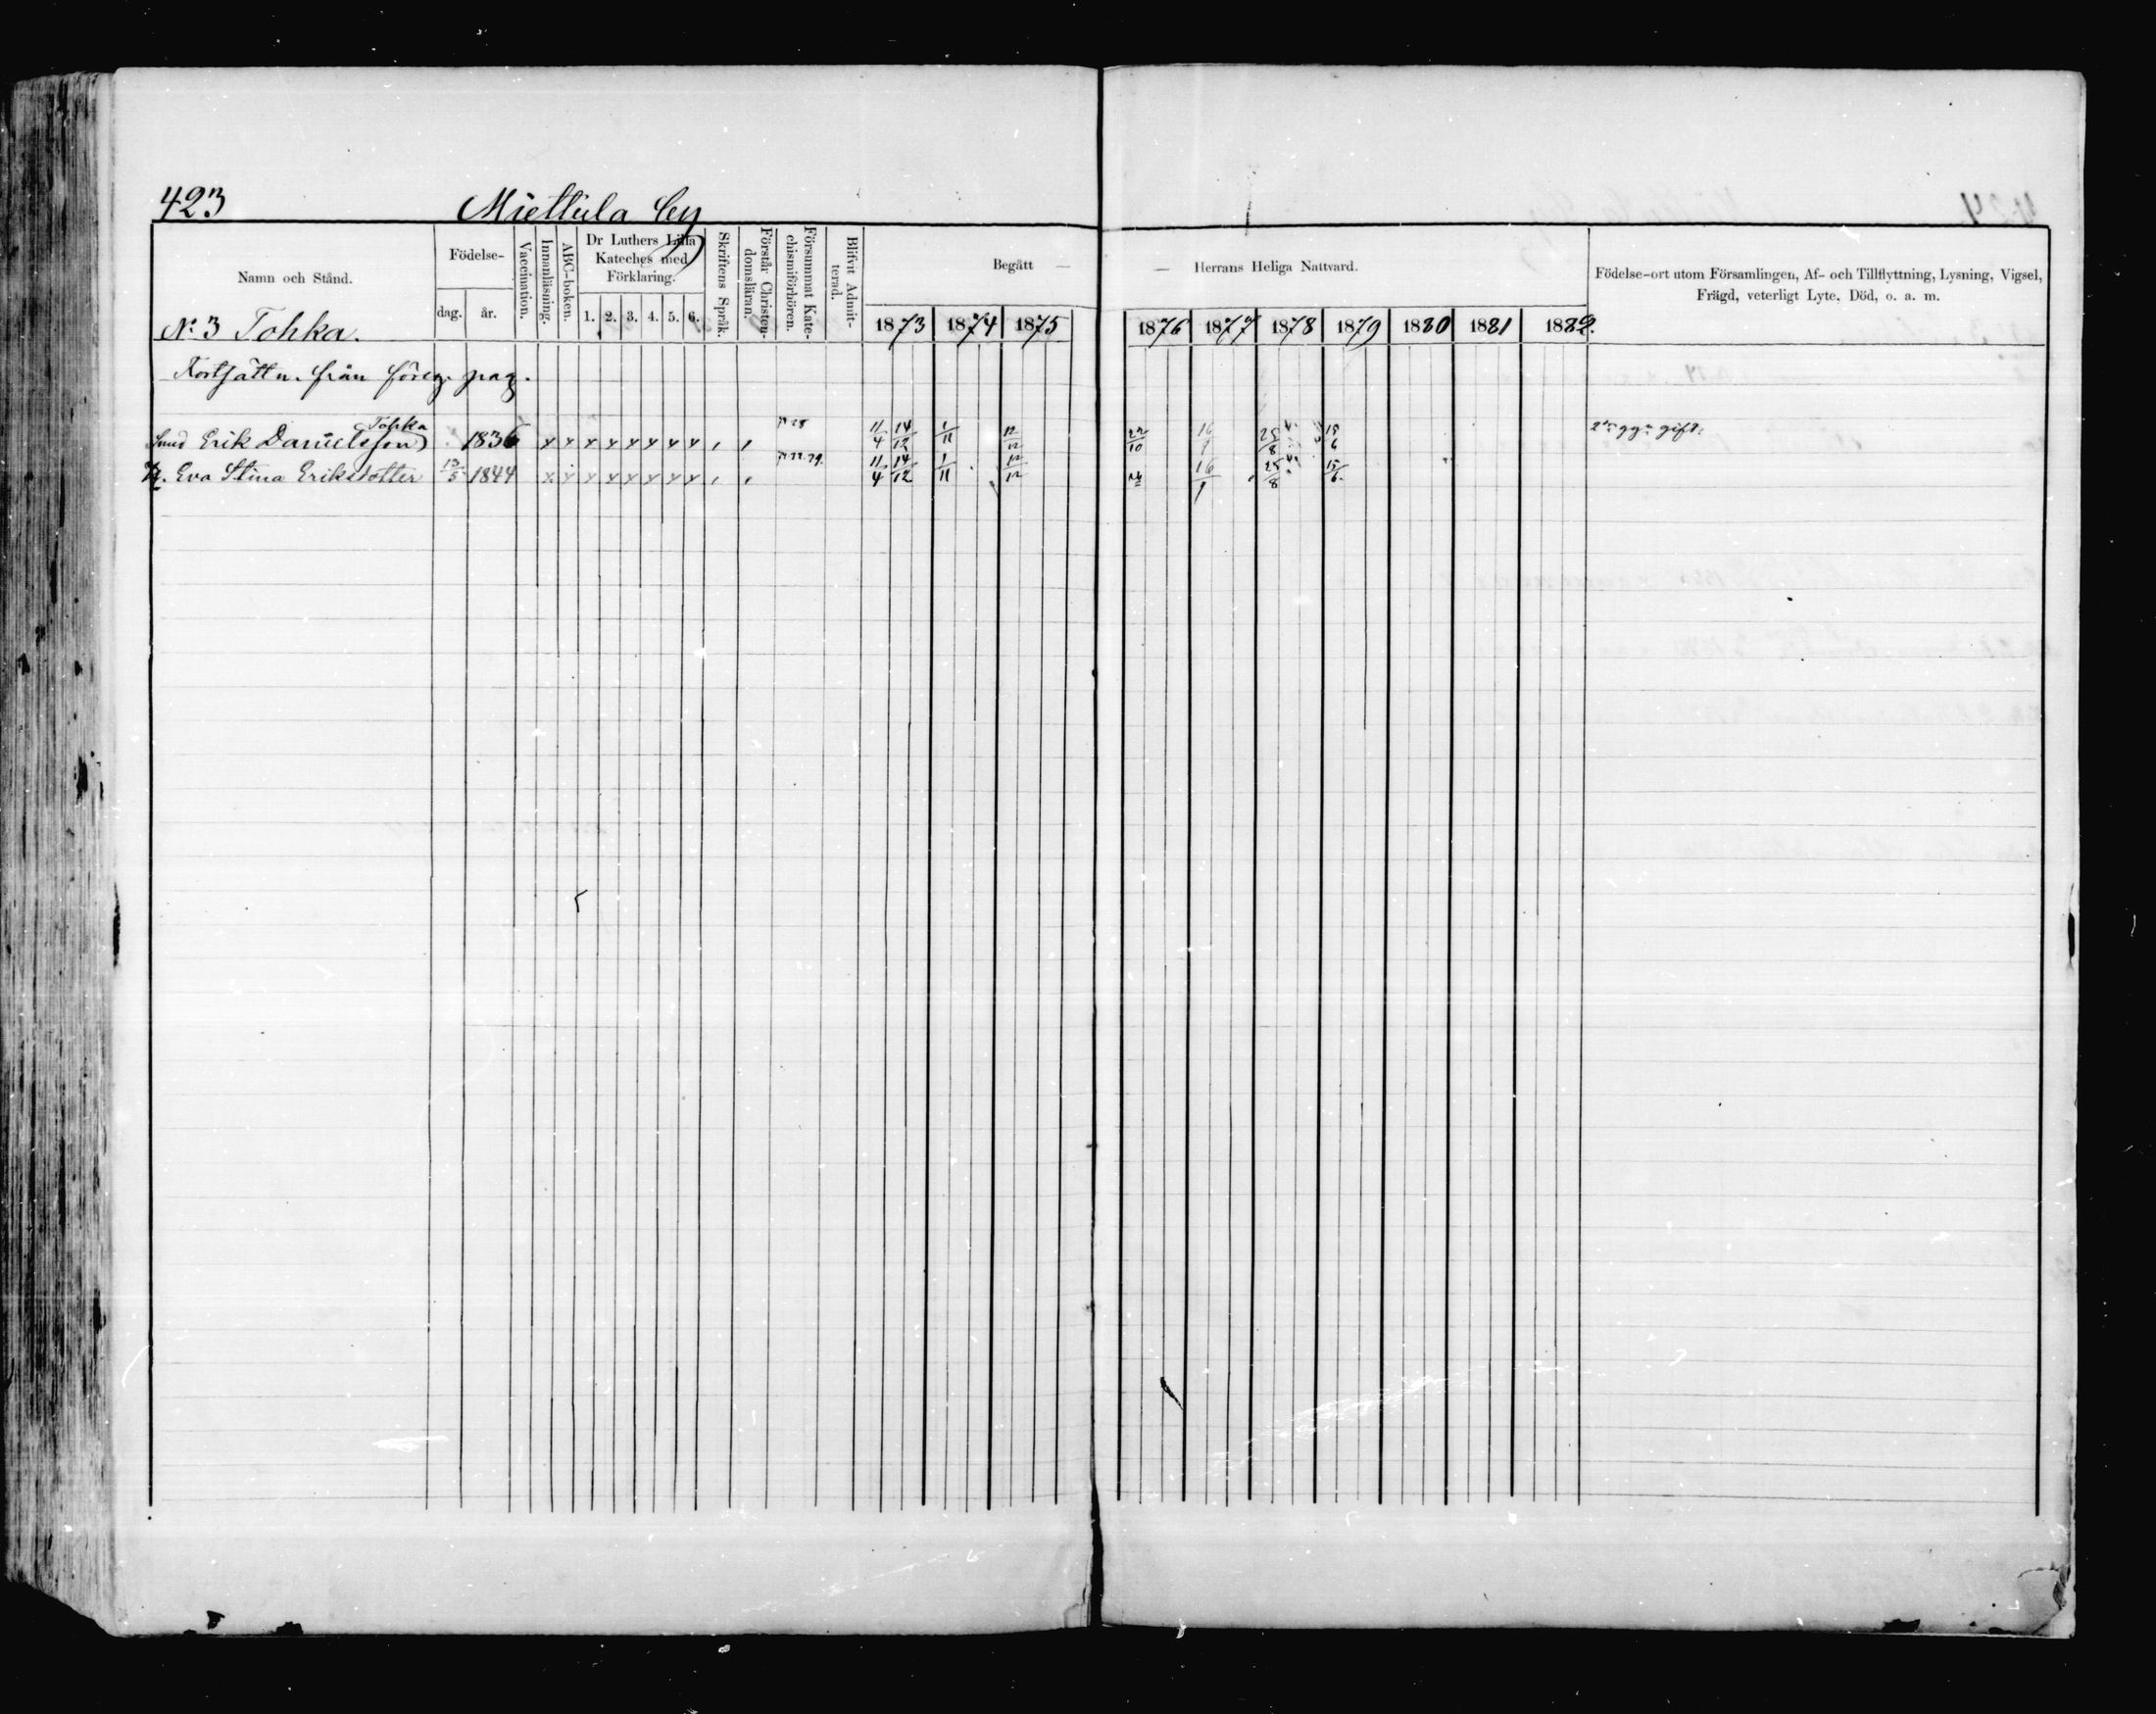 423 Miettula by
Namn och Stånd.
Födelse-
dag. år.
Vaccination.
Innanläsning.
ABC-boken.
Dr Luthers Lilla
Kateches med
Förklaring.
1. 2. 3. 4. 5. 6.
Skriftens Språk.
Förstår Christen-
domsläran.
Försummat Kate-
chismiförhören.
Blifvit Admit-
terad.
Begått — — Herrans Heliga Nattvard.
1873 1874 1875 1876 1877 1878 1879 1880 1881 1882.
Födelse-ort utom Församlingen, Af- och Tillflyttning, Lysning, Vigsel,
Frägd, veterligt Lyte, Död, o. a. m.
No 3 Tohka.
Fortsättn. från föreg. pag.
Tohka
Erik Danielsson 1836 x x x x x x x x 11/4 14/12 1/11 12/12 22/10 16/9 25/8 15/6 2dra gg: gift.
H. Eva Stina Eriksdotter 13/5 1844 x x x x x x x x 11/4 14/12 1/11 12/12 16/9 25/8 15/6